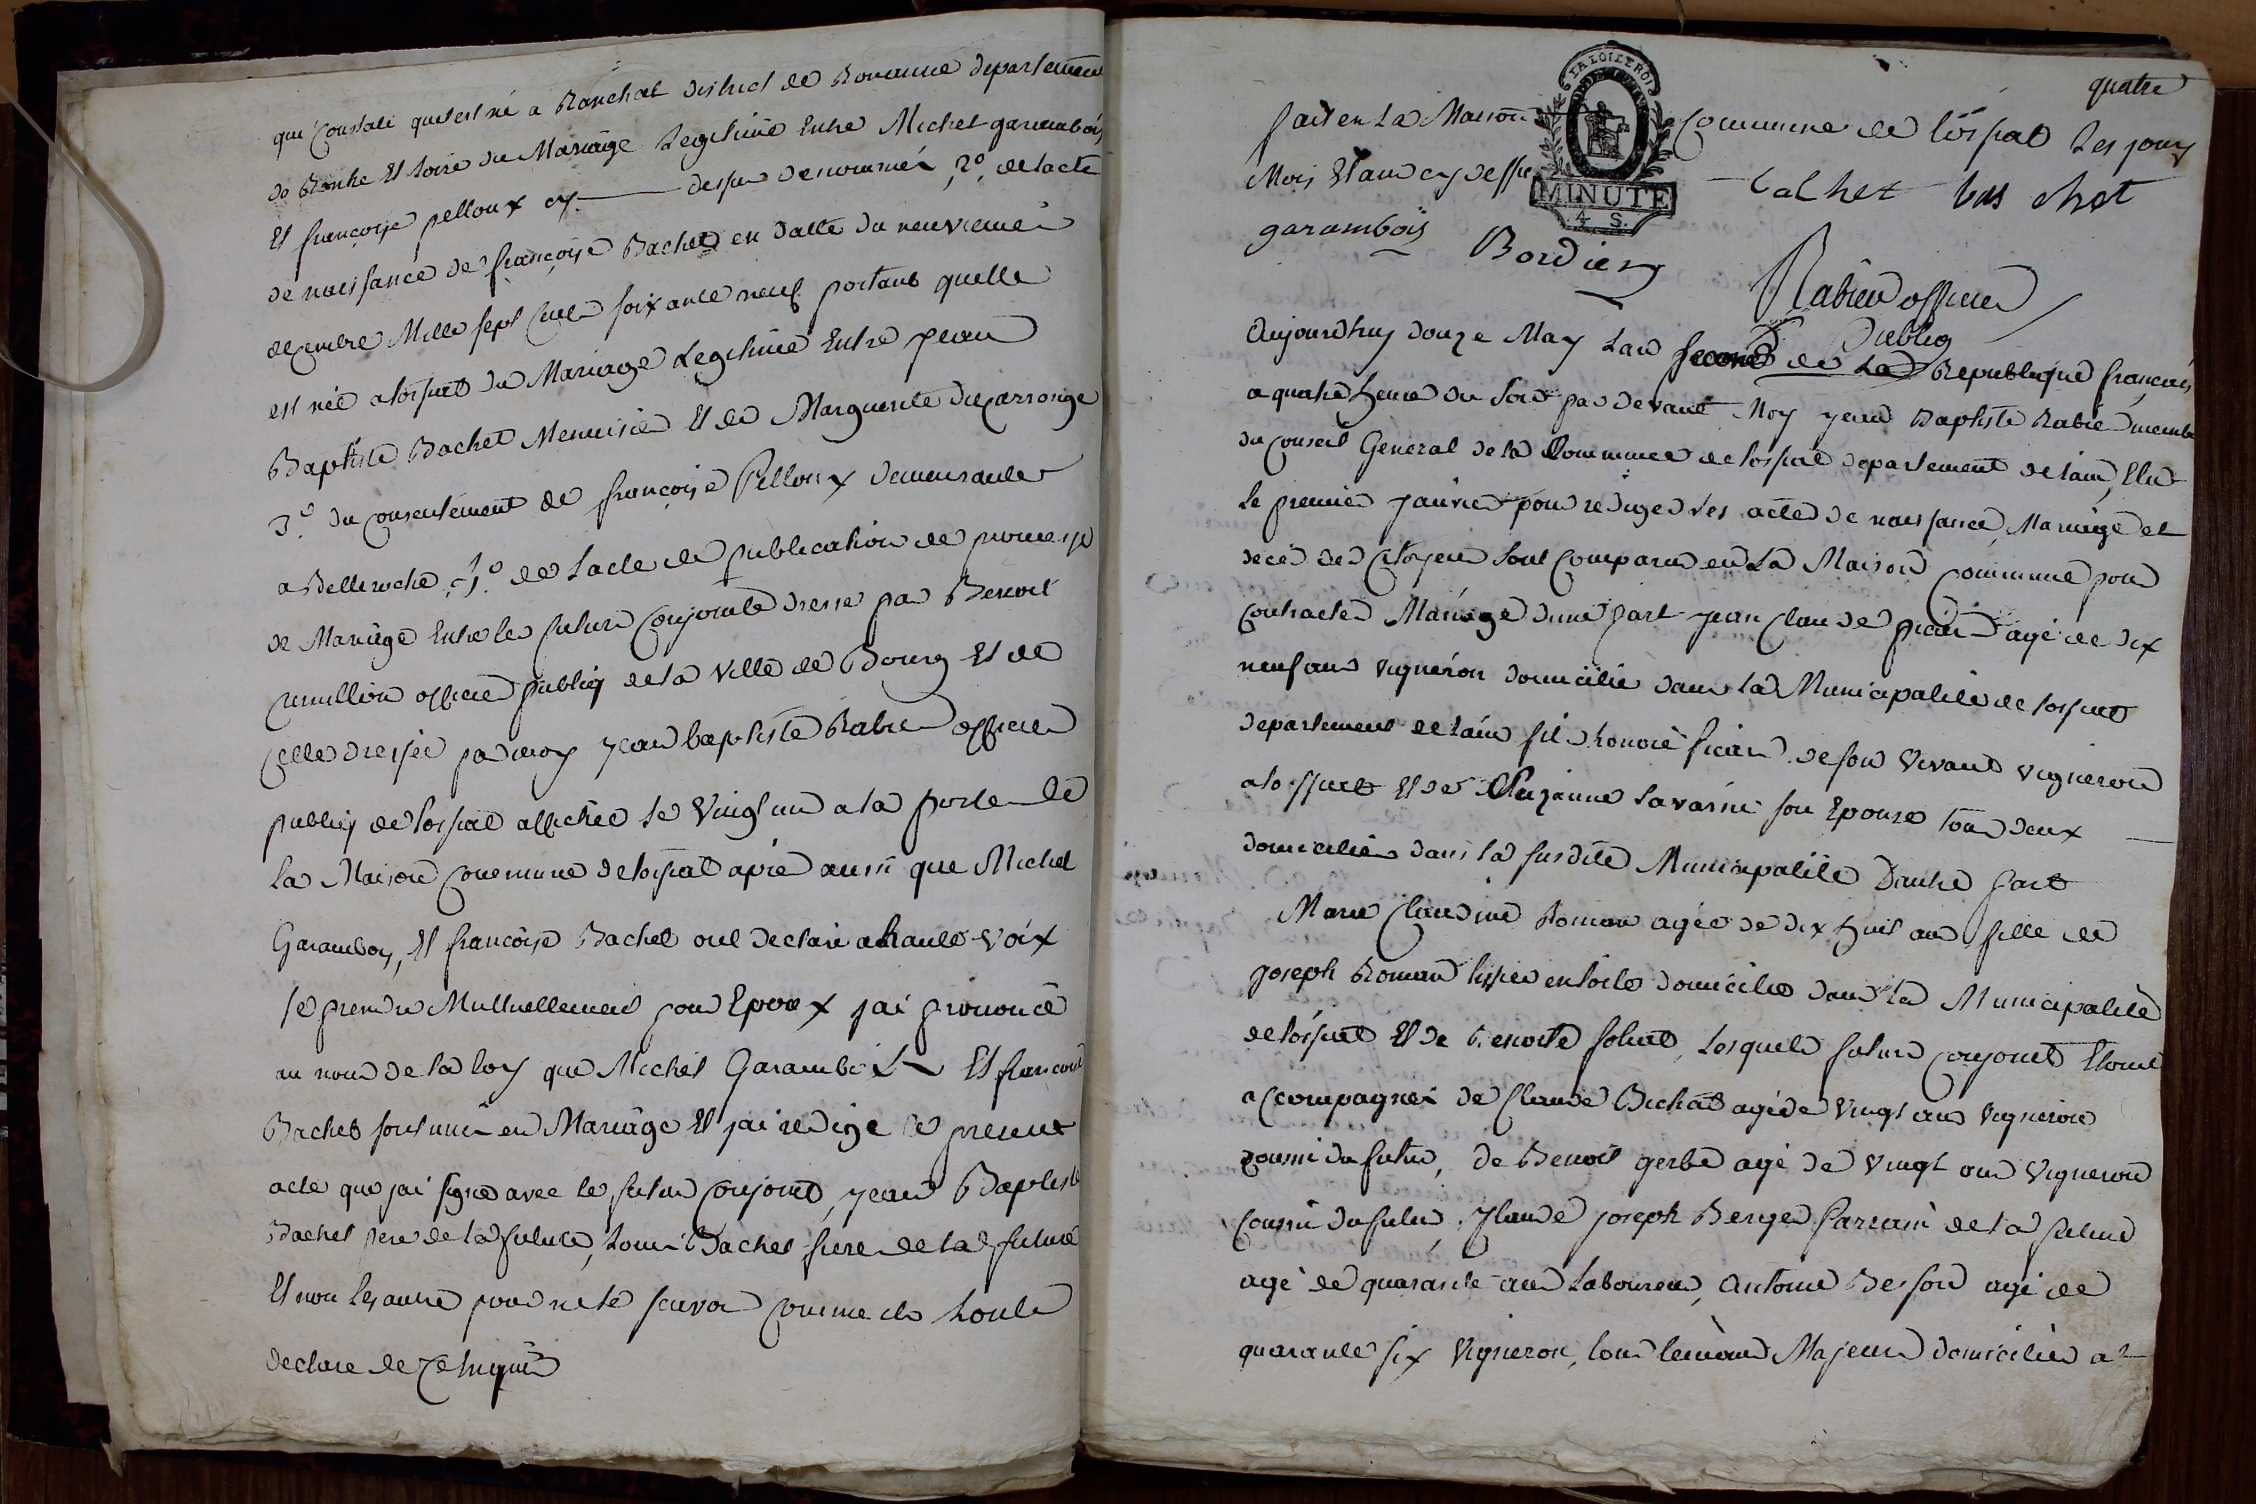 qui Constate quil est né a Ranchal district de Rouanne departement
de Rosne Et Loire du Mariage Legitime Entre Michel garambois
Et françoise pelloux cy dessus denommés, 2o. de lacte
de naissance de françoise Bachet en datte du neuvieme
decembre Mille sept Cent soixante neuf portant quelle
est née a lospital du Mariage Legitime Entre jean
Baptiste Bachet Menuisier Et de Marguerite ducarronge
3o. du consentement de françoise Pelloux demeurante
a Belleroche, de Lacte de publication de promesse
de Mariage Entre les futurs Conjoints dressé par Benoit
officier publiq de la ville de Bourg Et de
Celle dressée par moy jean baptiste Rabier officier
publiq de lospital affichée le vingt un a la porte de
la Maison Commune de lospital après aussi que Michel
Garambois, Et françoise Bachet ont declaré a haute voix
se prendre Mutuellement pour Epoux jai prononcé
au nom de la loy que Michel Garambois Et françoise
Bachet sont unis en Mariage Et jai redigé le present
acte que jai signé avec les futurs Conjoints, jean Baptiste
Bachet pere de la future, Louis Bachet frere de la future
Et non les autres pour ne le scavoir comme ils lont
declare de ce enquis
quatre
fait en La Maison Commune de lospital Les jours
Mois Et an cy dessus
LA LOI LE ROI
MINUTE
4 S.
garambois Bordier
Rabier officier
Publiq
Aujourdhuy douze May Lan second de la Republique français
a quatre heure du soir par devant Moy jean Baptiste Rabier membre
du Conseil General de la Commune de lospital departement de lain, Elu
le premier janvier pour rediger les actes de naissance, Mariage et
décès des Citoyens sont Comparus en La Maison Commune pour
Contracter Mariage dune part jean Claude picard agé de dix
neuf ans vigneron domicilié dans la Municipalité de lospital
departement de lain fils honoré picard de son vivant vigneron
a lospital Et de Suzanne Savarin son Epouse tous deux
domiciliés dans la susdite Municipalité Dautre part
Marie Claudine Roman agée de dix huit ans fille de
joseph Roman tissier en toile domicilié dans la Municipalité
de lospital Et de Benoite Lesquels futurs conjoints Etoient
accompagnés de Claude Bichat agé de vingt ans vigneron
cousin du futur, de Benoit gerbe agé de vingt ans vigneron
Cousin du futur, Claude joseph Berger parrain de la future
agé de quarante ans Laboureur, Antoine Besson agé de
quarante six vigneron, tous temoins Majeurs domiciliés a